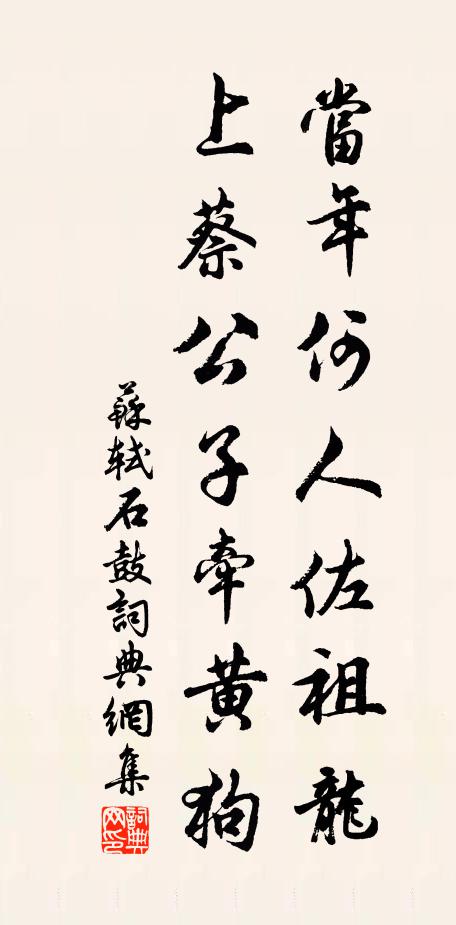 當年何人佐祖龍
上蔡公子牽黃狗
蘇軾石鼓詞典網集
詞典網印